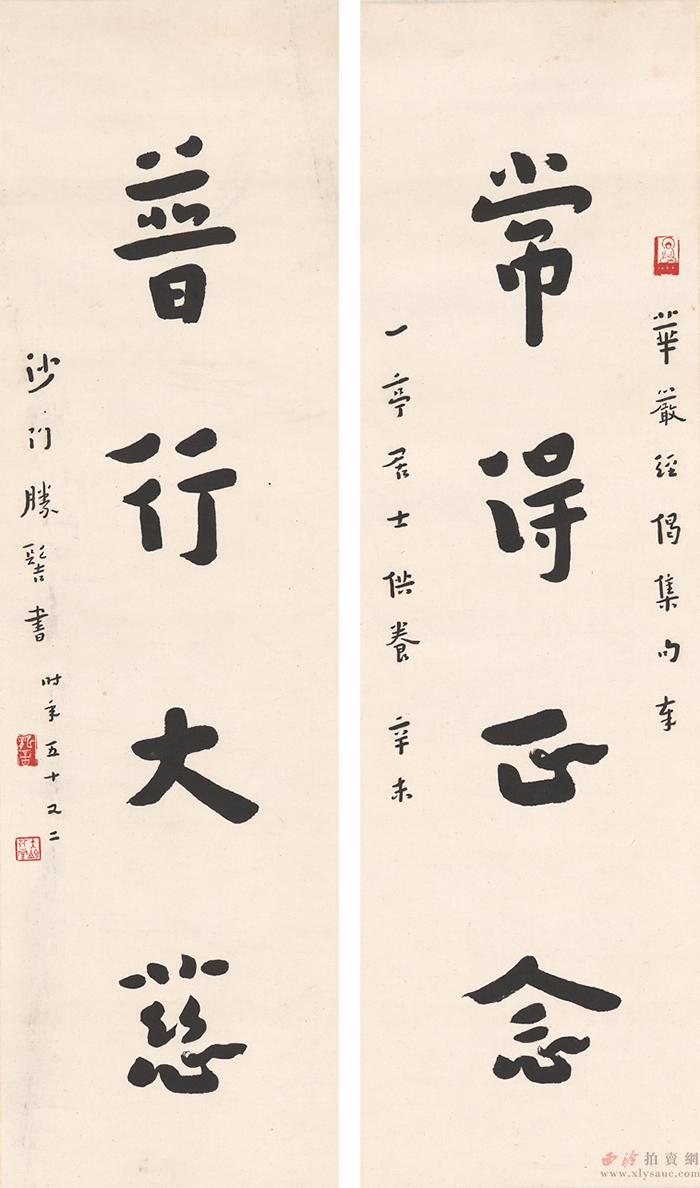 華嚴經偈集句奉
常得正念
一亭居士供養 辛未
普行大慈
沙門勝髻書 時年五十又二
西泠拍賣網
www.xlysauc.com